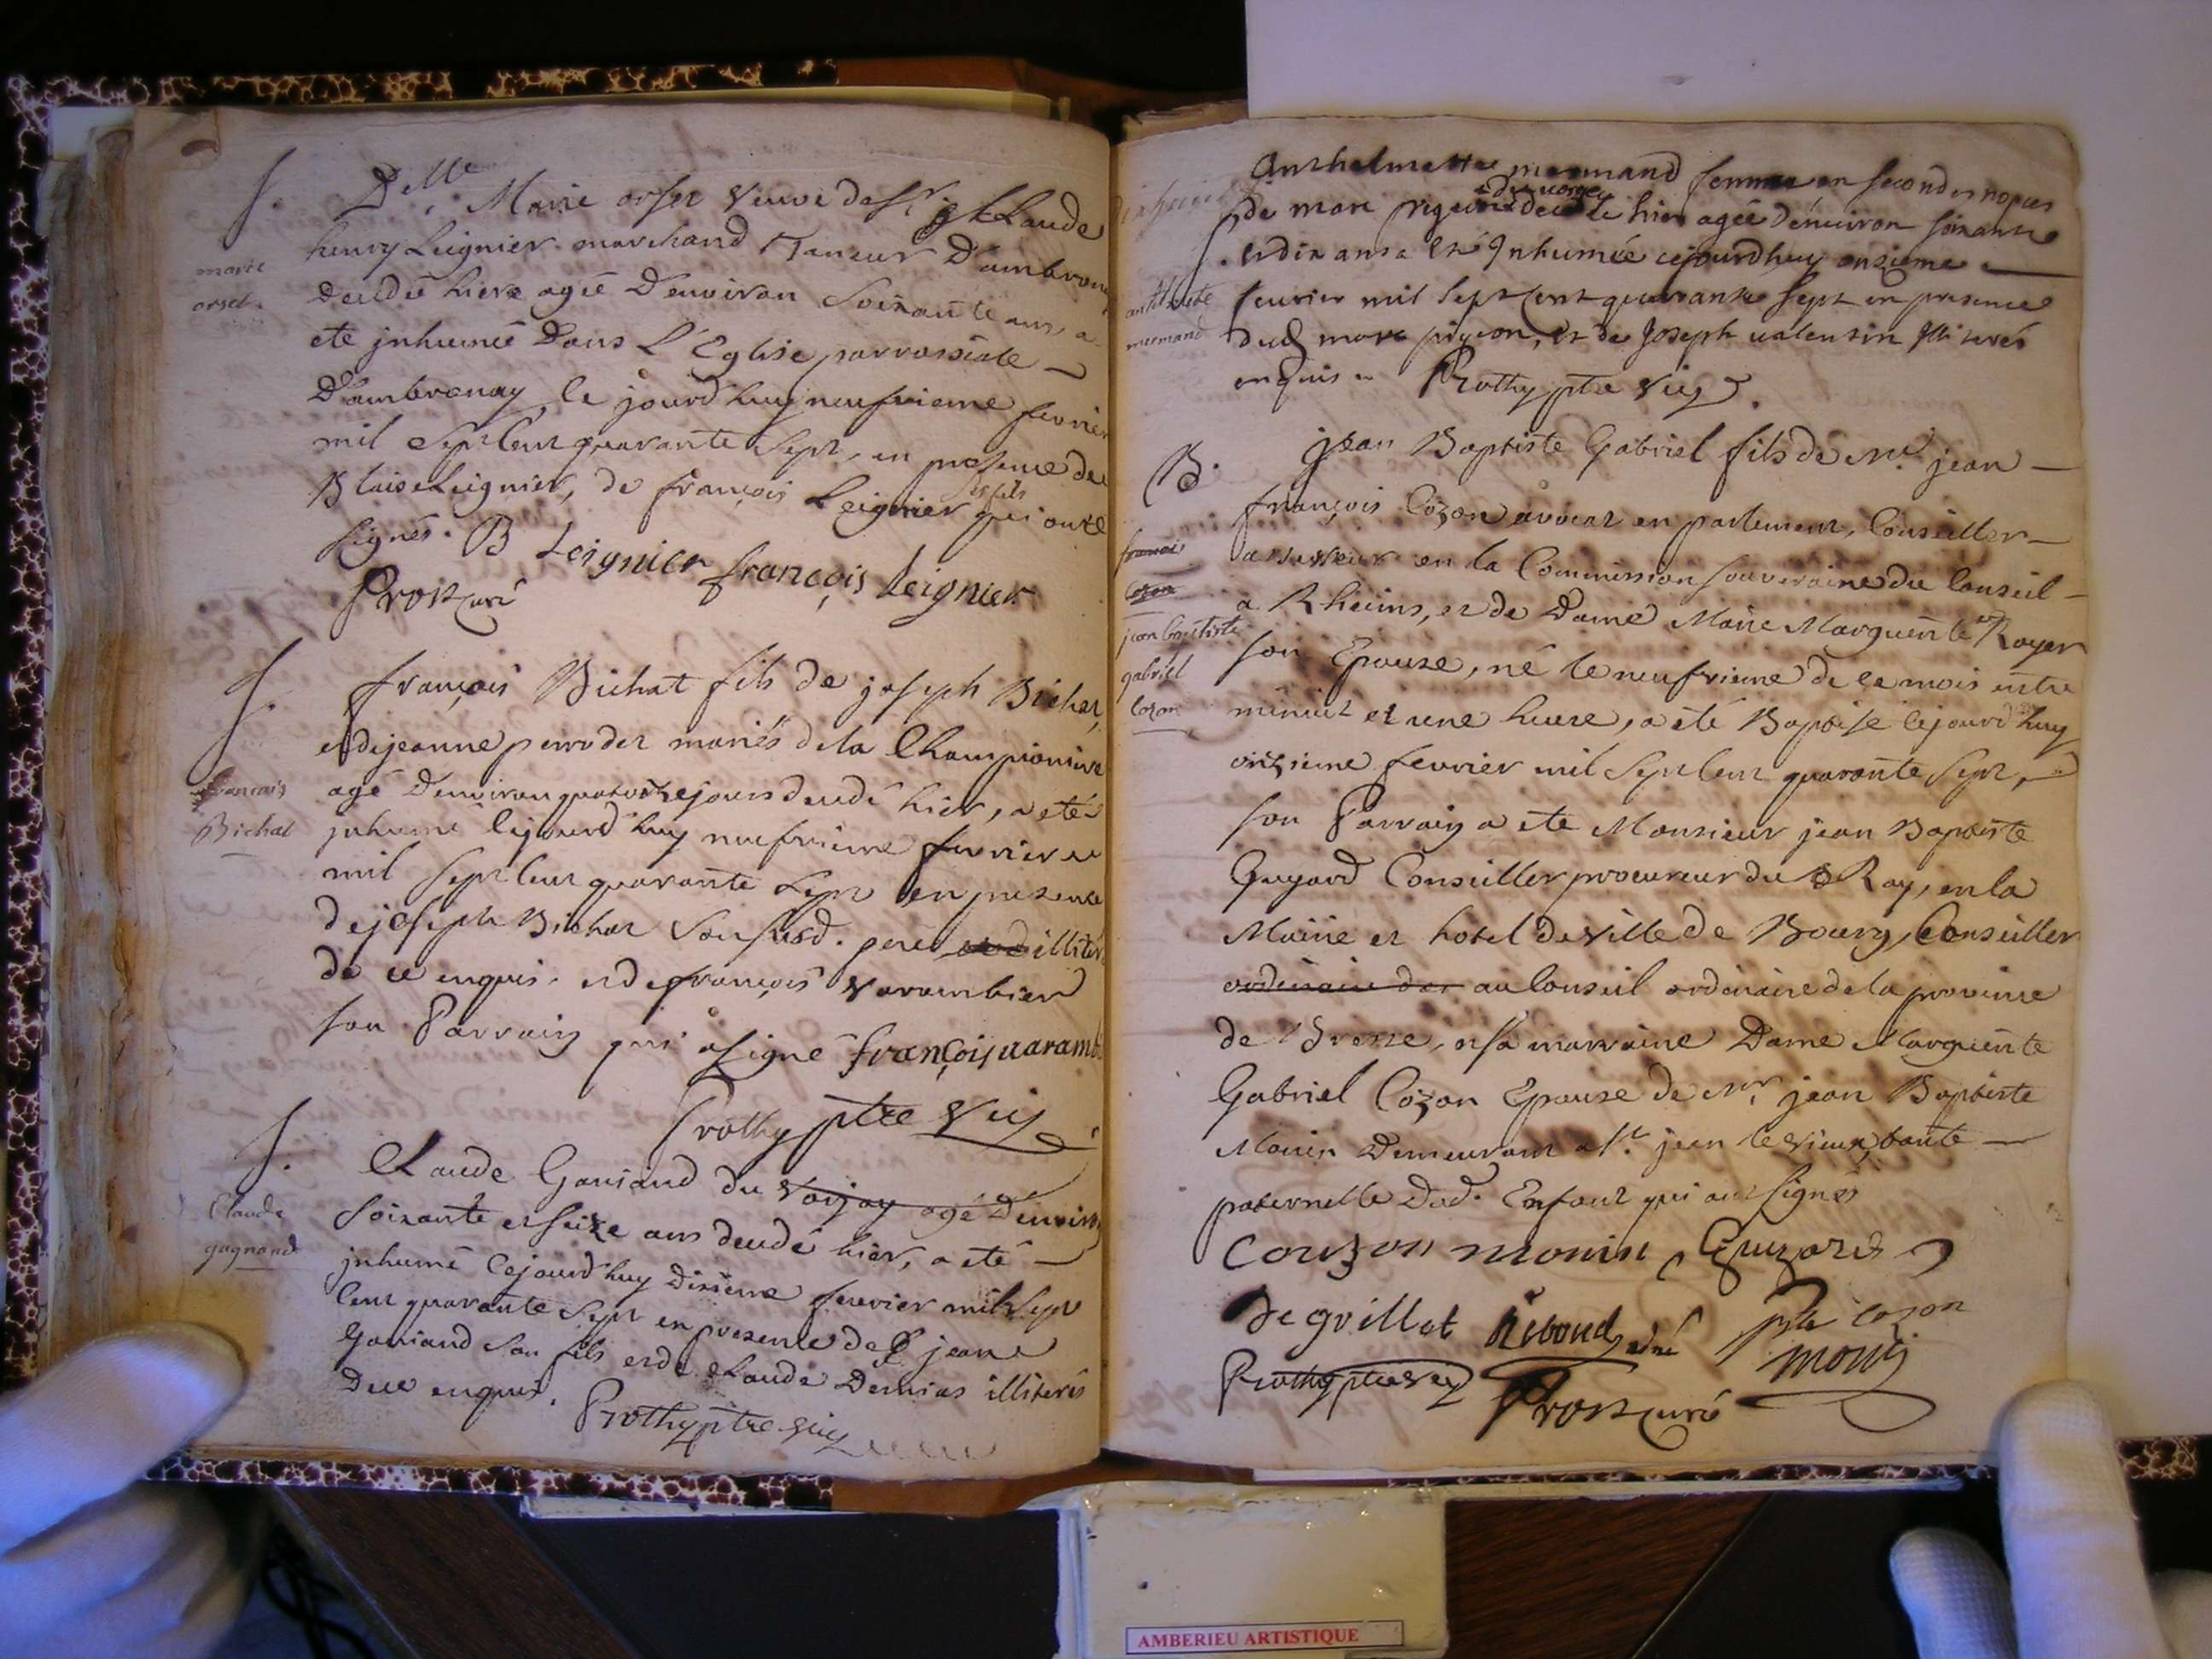 S.
marie
orset
Delle Marie orset veuve de Sr Claude
henry Leignier marchand Taneur D'ambronay
decedée hiere agée D'environ Soixante ans, a
eté jnhumée Dans L'Eglise parrossiale
D'ambronay, le jourd'huy neufvieme fevrier
mil Sept Cent quarante Sept, en presence de
Blaise Leignier, de françois Leignier ses fils qui ont
Signés. B Leignier françois Leignier
Prost curé
S.
francais
Bichat
françois Bichat fils de joseph Bichat
et de jeanne perrodet mariés de la Championiere
agé D'environ quatorze jours decedé hier, a eté
jnhumé Cejourd'huy neufvieme fevrier
mil Sept Cent quarante Sept en presence
de joseph Bichat Son susd. pere illiter
de ce enquis. et de françois varambier
son Parrain qui a Signé françois varamb
Prothy ptre Vic
S.
Claude
gagnand
Claude Ganiand du Voijay agé D'environ
Soixante et seize ans decedé hier, a eté
jnhumé Cejourd'huy Dixieme fevrier mil Sept
Cent quarante Sept en presence de jean
Ganiand Son fils et de Claude Demias illiterés
De ce enquis. Prothy ptre Vic
S.
anthelmette
mermand
Anthelmette mermand femme en secondes nopces
de marc pigeon decedée hier agée d'environ soixante
et dix ans a Eté Inhumée cejourdhuy onzieme
feuvrier mil Sept Cent quarante Sept en presence
dud marc pigeon, et de Joseph valentin Illiterés
enquis Prothy ptre Vic.
B.
francois
Cozon
jean baptiste
gabriel
cozon
jean Baptiste Gabriel fils de Mr jean
françois Cozon avocat en parlement, Conseiller
assesseur en la Commission souveraine du Conseil
a Rheims, et de Dame Marie Marguerite Royer
son Epouse, né le neufvieme de ce mois entre
minuit et une heure, a eté Baptisé Cejourd'huy
onzieme fevrier mil Sept Cent quarante Sept,
son Parrain a eté Monsieur jean Baptiste
Guyard Conseiller procureur du Roy, en la
Mairie et hotel de ville de Bourg, Conseiller
ordinaire des au Conseil ordinaire de la province
de Bresse, et sa marraine Dame Marguerite
Gabriel Cozon Epouse de Mr. jean Baptiste
Monin Demeurant a St. jean le vieux, tante
paternelle Dud. Enfant qui ont Signés
Couzon monin Guyard
De grillet Riboud ainé ptre cozon
Prothy ptre vic Prost curé monin
AMBERIEU ARTISTIQUE